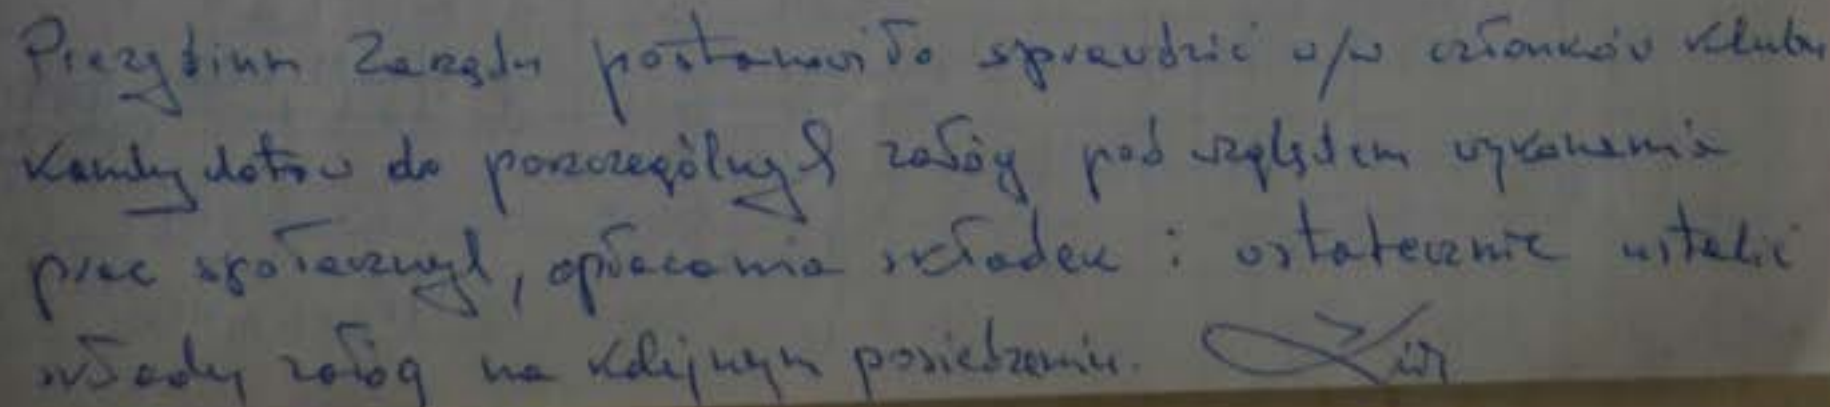 Prezydium Zarządu postanowiło sprawdzić w/w członków klubu
kandydatów do poszczególnych załóg pod względem wykonania
prac społecznych, opłacania składek i ostatecznie ustalić
składy załóg na kolejnym posiedzeniu.